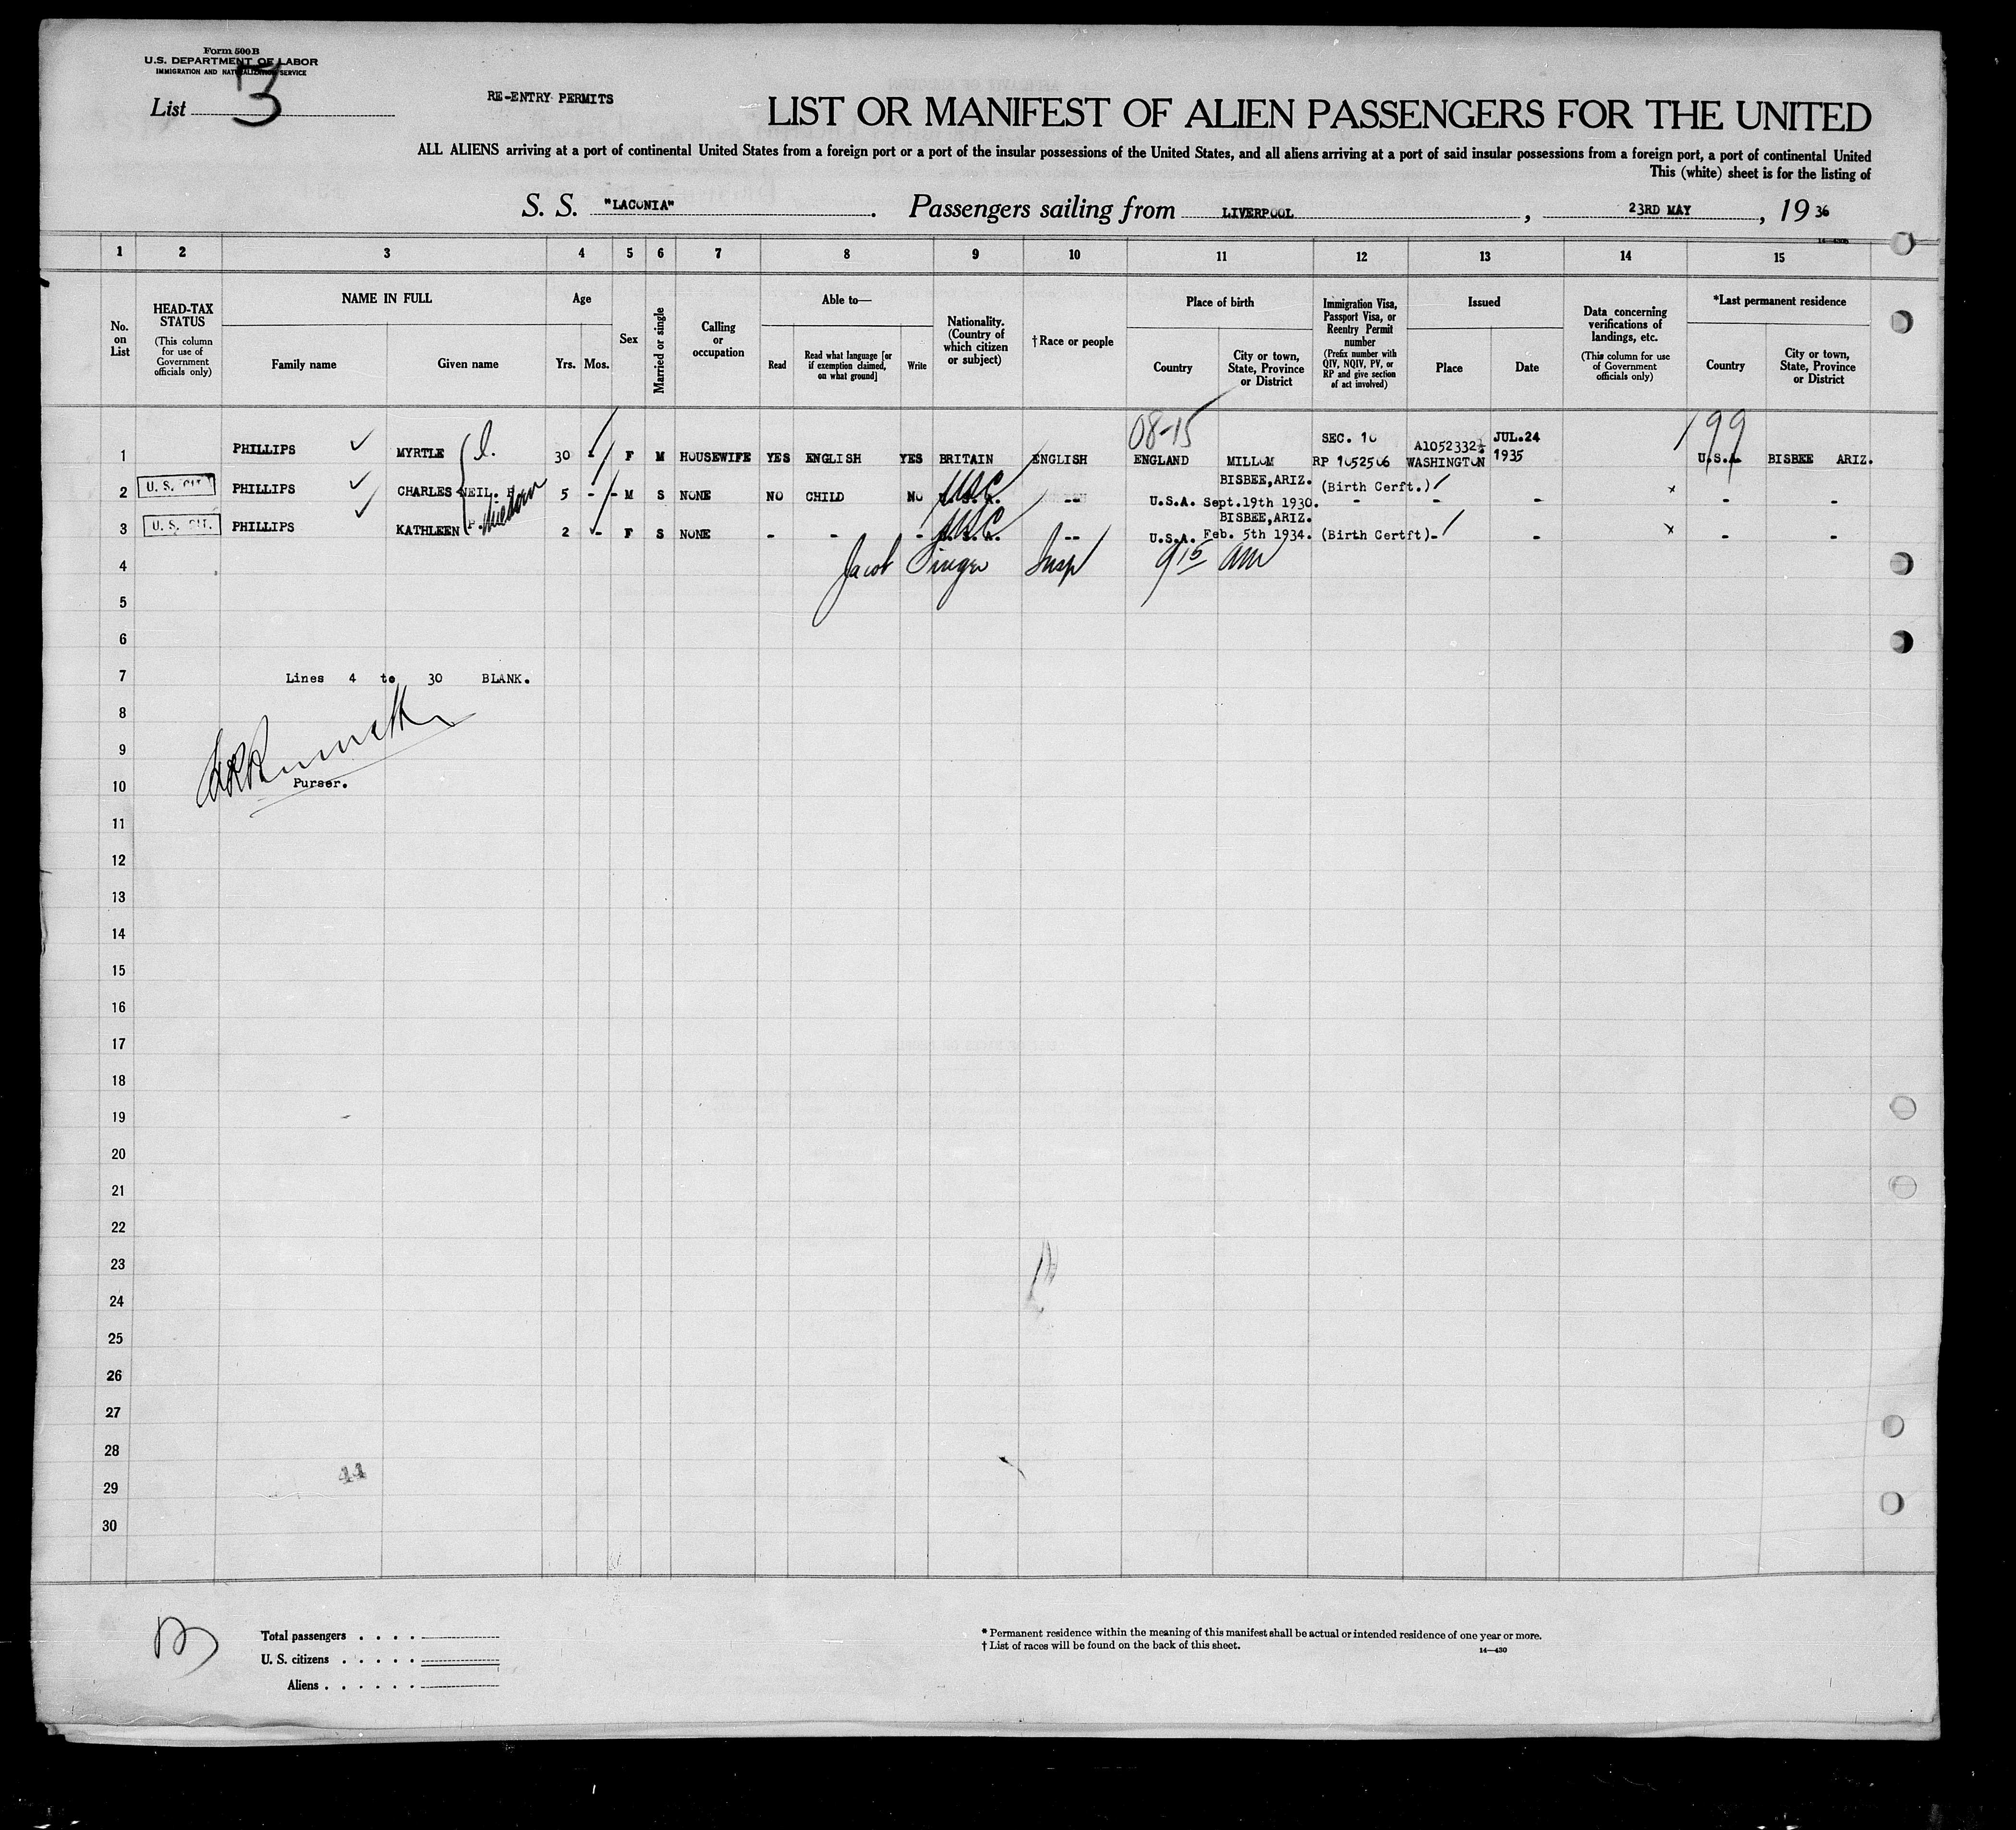 Form 500 B
U.S. DEPARTMENT OF LABOR
IMMIGRATION AND NATURALIZATION SERVICE
List 3
RE-ENTRY PERMITS
LIST OR MANIFEST OF ALIEN PASSENGERS FOR THE UNITED
ALL ALIENS arriving at a port of continental United States from a foreign port or a port of the insular possessions of the United States, and all aliens arriving at a port of said insular possessions from a foreign port, a port of continental United
This (white) sheet is for the listing of
S. S. "LACONIA". Passengers sailing from LIVERPOOL, 23RD MAY, 19 36
14—430b
1 2 3 4 5 6 7 8 9 10 11 12 13 14 15
No. on List
HEAD-TAX STATUS
(This column for use of Government officials only)
NAME IN FULL
Family name Given name
Age
Yrs. Mos.
Sex
Married or single
Calling or occupation
Able to—
Read Read what language [or if exemption claimed, on what ground] Write
Nationality. (Country of which citizen or subject)
†Race or people
Place of birth
Country City or town, State, Province or District
Immigration Visa, Passport Visa, or Reentry Permit number
(Prefix number with QIV, NQIV, PV, or RP and give section of act involved)
Issued
Place Date
Data concerning verifications of landings, etc.
(This column for use of Government officials only)
*Last permanent residence
Country City or town, State, Province or District
08-15 199
SEC. 10 A1052332½ JUL.24
1 PHILLIPS MYRTLE I. 30 - F M HOUSEWIFE YES ENGLISH YES BRITAIN ENGLISH ENGLAND MILLOM RP 1052506 WASHINGTON 1935 U.S.A. BISBEE ARIZ.
BISBEE,ARIZ.
2 U. S. CIT. PHILLIPS CHARLES NEIL. 5 - M S NONE NO CHILD NO USC -- U.S.A. Sept.19th 1930. (Birth Cerft.) - - x - -
BISBEE,ARIZ.
3 U. S. CIT. PHILLIPS KATHLEEN P. 2 - F S NONE - - - USC -- U.S.A. Feb. 5th 1934. (Birth Certft)- - x - -
4 Jacob Singer Insp 9 15 am
5
6
7 Lines 4 to 30 BLANK.
8
9
10 Purser.
11
12
13
14
15
16
17
18
19
20
21
22
23
24
25
26
27
28
44
29
30
Total passengers . . . .
U. S. citizens . . . . .
Aliens . . . . . .
* Permanent residence within the meaning of this manifest shall be actual or intended residence of one year or more.
† List of races will be found on the back of this sheet.
14—430